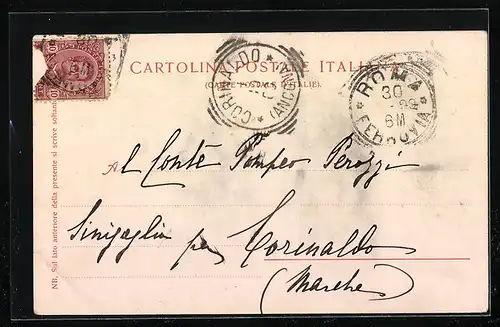 CARTOLINA POSTALE ITALIANA
(CARTE POSTALE D'ITALIE)
CORINALDO
(ANCONA)
ROMA
30
99
6M
FERROVIA
Al Conte Pompeo Perozzi
Sinigaglia per Corinaldo
(Marche)
NB. Sul lato anteriore della presente si scrive soltanto